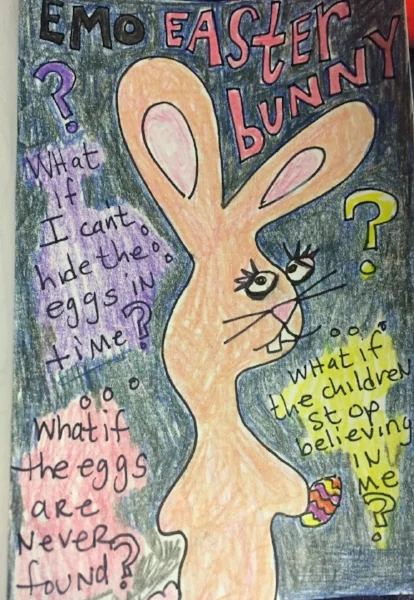 EMO EASTER
BUNNY
?
What
If
I can't
hide the
eggs in
time?
?
What if
the children
stop
believing
IN
Me
?
What if
the eggs
ARE
Never
found?